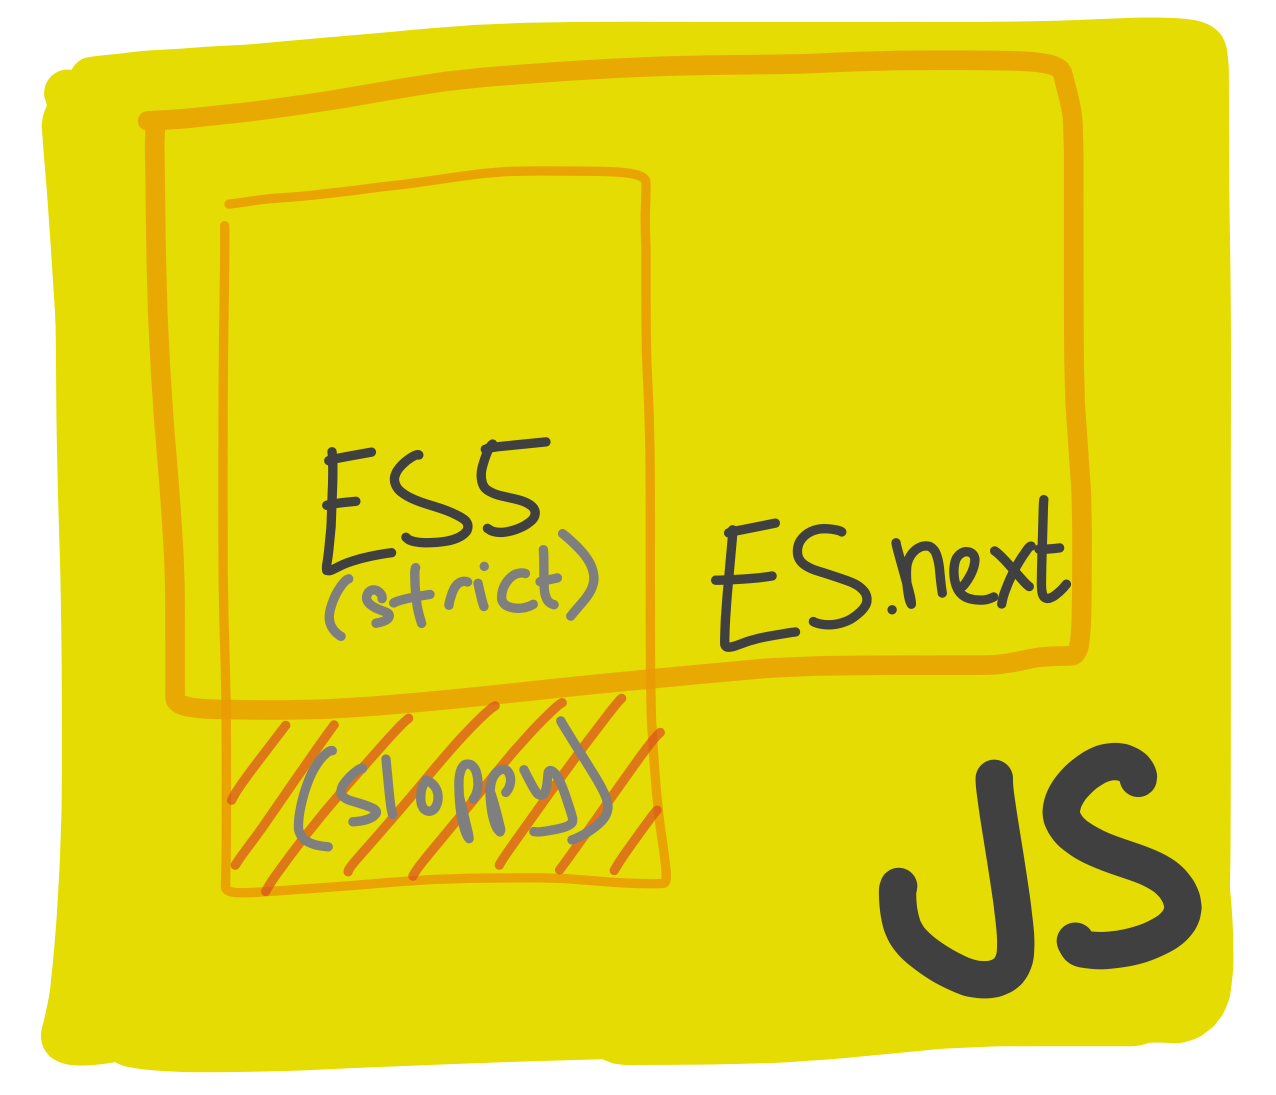 ES5
(strict)
ES.next
(sloppy)
JS